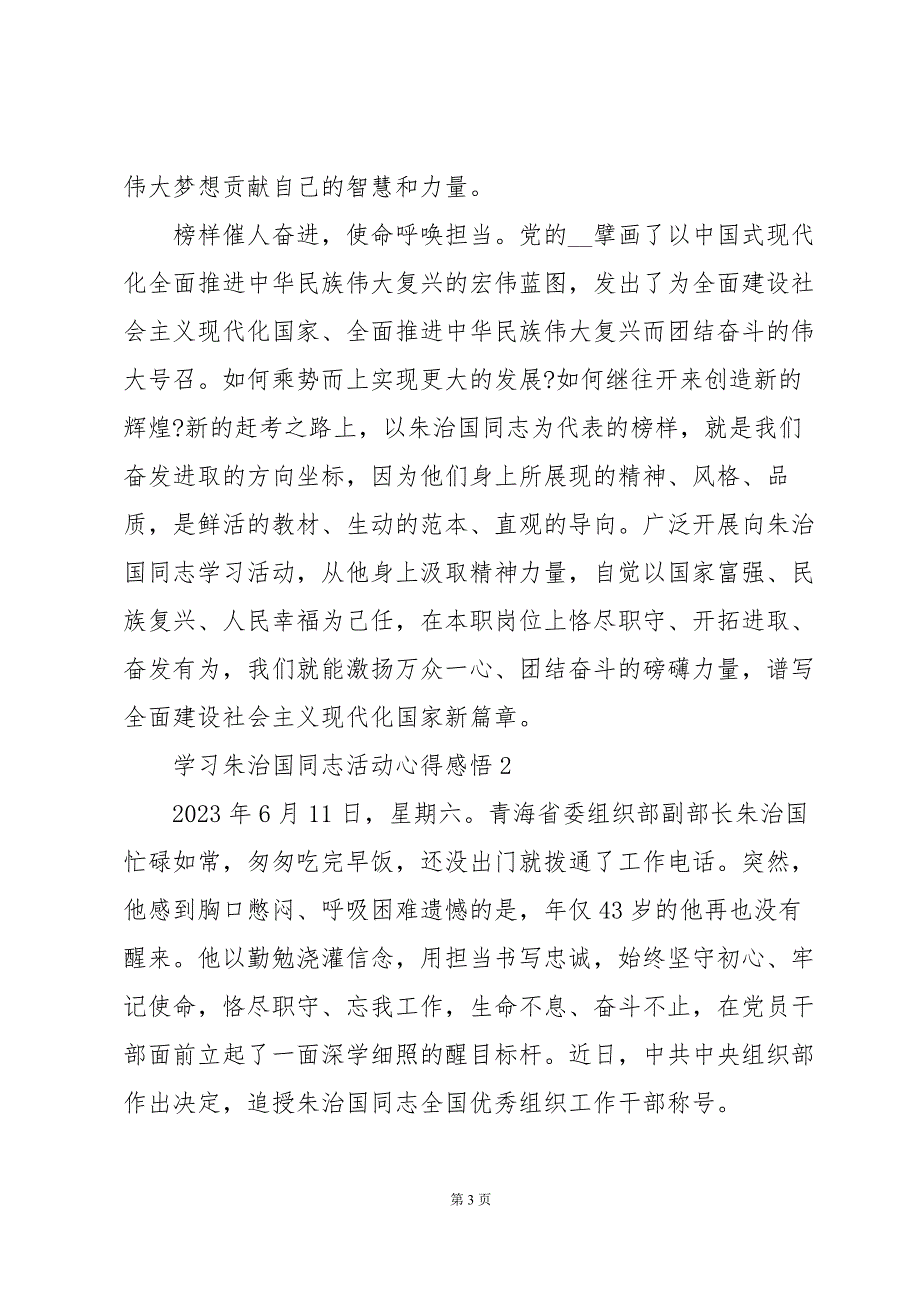 伟大梦想贡献自己的智慧和力量。
榜样催人奋进，使命呼唤担当。党的__擘画了以中国式现代
化全面推进中华民族伟大复兴的宏伟蓝图，发出了为全面建设社
会主义现代化国家、全面推进中华民族伟大复兴而团结奋斗的伟
大号召。如何乘势而上实现更大的发展?如何继往开来创造新的
辉煌?新的赶考之路上，以朱治国同志为代表的榜样，就是我们
奋发进取的方向坐标，因为他们身上所展现的精神、风格、品
质，是鲜活的教材、生动的范本、直观的导向。广泛开展向朱治
国同志学习活动，从他身上汲取精神力量，自觉以国家富强、民
族复兴、人民幸福为己任，在本职岗位上恪尽职守、开拓进取、
奋发有为，我们就能激扬万众一心、团结奋斗的磅礴力量，谱写
全面建设社会主义现代化国家新篇章。
学习朱治国同志活动心得感悟 2
2023 年 6 月 11 日，星期六。青海省委组织部副部长朱治国
忙碌如常，匆匆吃完早饭，还没出门就拨通了工作电话。突然，
他感到胸口憋闷、呼吸困难遗憾的是，年仅 43 岁的他再也没有
醒来。他以勤勉浇灌信念，用担当书写忠诚，始终坚守初心、牢
记使命，恪尽职守、忘我工作，生命不息、奋斗不止，在党员干
部面前立起了一面深学细照的醒目标杆。近日，中共中央组织部
作出决定，追授朱治国同志全国优秀组织工作干部称号。
第 3 页